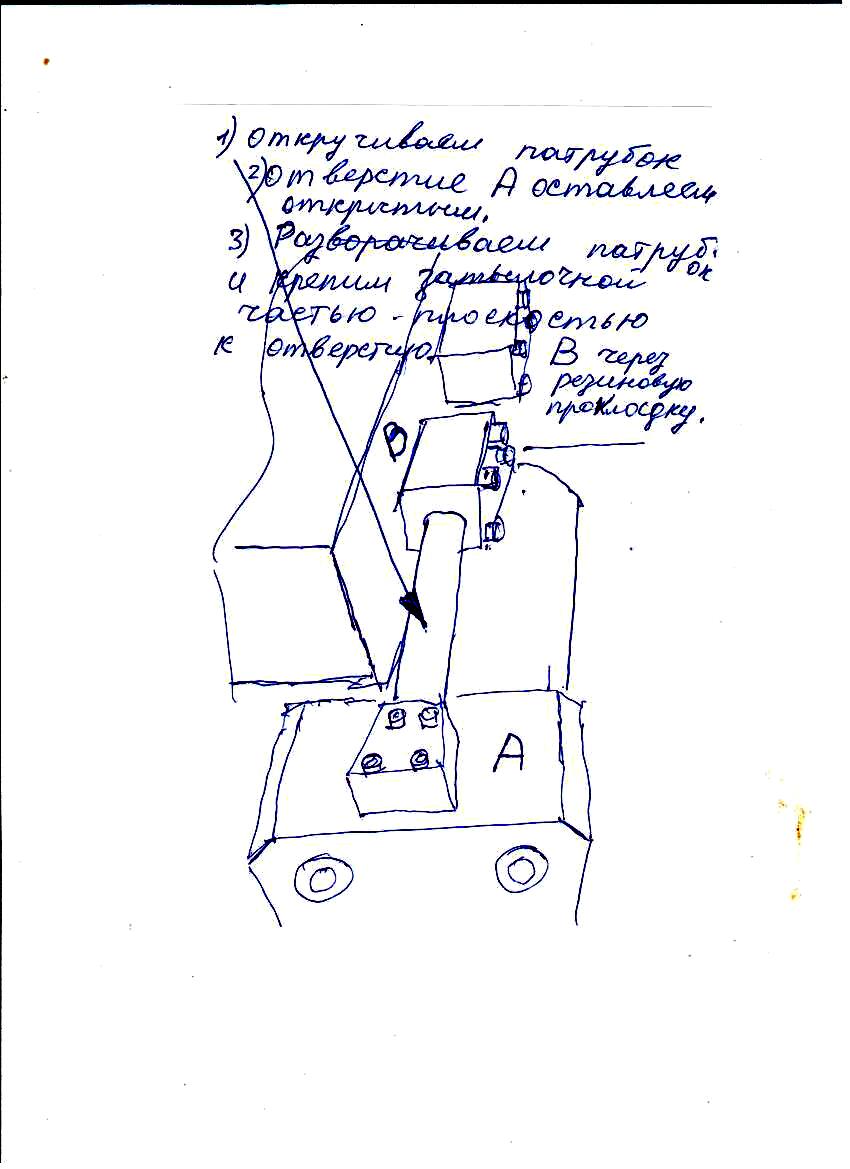 1) откручиваем патрубок
2) отверстие А оставляем
открытым.
3) Разворачиваем патруб.
ок
и крепим затылочной
частью - плоскостью
к отверстию В через
резиновую
прокладку.
В
А